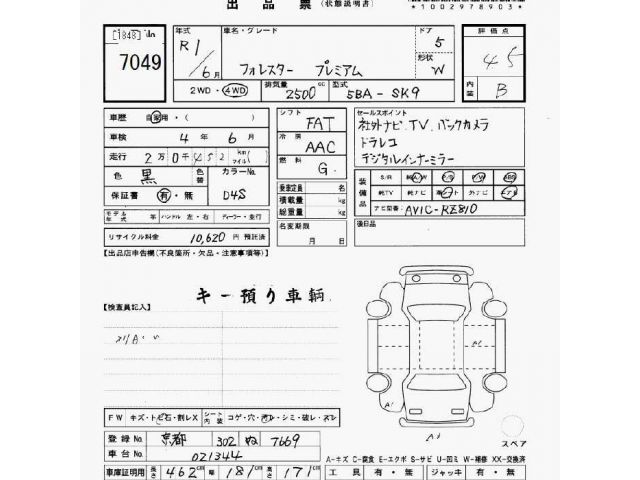 出品票 (状態説明書)
*1002978903*
7049
年式 R1/6月
車名・グレード フォレスター プレミアム
ドア 5
形状 W
評価点 4.5
内装 B
2WD・4WD 排気量 2500cc 型式 5BA-SK9
車歴 自家用・( )
車検 4年 6月
走行 2万0千452 km/マイル
色 黒 色替 カラーNo. D4S
保証書 有・無
モデル年式 年 ハンドル 左・右 ディーラー・並行
リサイクル料金 10,620円 預託済
シフト FAT
冷房 AAC
燃料 G.
乗車定員 名
積載量 kg
総重量 kg
名変期限 月 日
セールスポイント
社外ナビ、TV、バックカメラ
ドラレコ
デジタルインナーミラー
装備品 S/R 純A/W P/S P/W ABS
純TV 純ナビ 革シート 外ナビ エアB
ナビ型番 AVIC-RZ810
後日品
【出品店申告欄(不良箇所・欠品・注意事項等)】
キー預り車輌
【検査員記入】
A1
A1
A1
FW キズ・トビ石・割レX シート内装 コゲ・穴・スレ・シミ・破レ・ヌレ
登録No 京都 302 ぬ 7669
車台No. 021344
スペア
A-キズ C-腐食 E-エクボ S-サビ U-凹ミ W-補修 XX-交換済
車庫証明用 長さ 462cm 幅 181cm 高さ 171cm
工具 有・無 ジャッキ 有・無